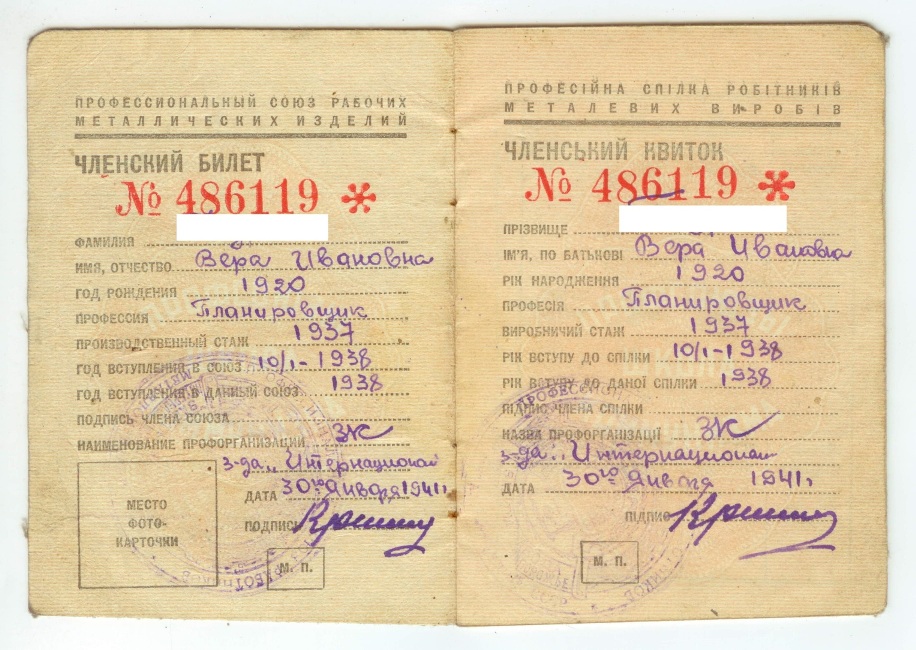 ПРОФЕССИОНАЛЬНЫЙ СОЮЗ РАБОЧИХ
МЕТАЛЛИЧЕСКИХ ИЗДЕЛИЙ
ЧЛЕНСКИЙ БИЛЕТ
№ 486119 *
ФАМИЛИЯ
ИМЯ, ОТЧЕСТВО Вера Ивановна
ГОД РОЖДЕНИЯ 1920
ПРОФЕССИЯ Планировщик
ПРОИЗВОДСТВЕННЫЙ СТАЖ 1937
ГОД ВСТУПЛЕНИЯ В СОЮЗ 10/I-1938
ГОД ВСТУПЛЕНИЯ В ДАННЫЙ СОЮЗ 1938
ПОДПИСЬ ЧЛЕНА СОЮЗА
НАИМЕНОВАНИЕ ПРОФОРГАНИЗАЦИИ ЗК
з-да „Интернационал
ДАТА 30го Января 1941г
ПОДПИСЬ
МЕСТО
ФОТО-
КАРТОЧКИ
М. П.
ПРОФЕСІЙНА СПІЛКА РОБІТНИКІВ
МЕТАЛЕВИХ ВИРОБІВ
ЧЛЕНСЬКИЙ КВИТОК
№ 486119 *
ПРІЗВИЩЕ
ІМ'Я, ПО БАТЬКОВІ Вера Ивановна
РІК НАРОДЖЕННЯ 1920
ПРОФЕСІЯ Планировщик
ВИРОБНИЧИЙ СТАЖ 1937
РІК ВСТУПУ ДО СПІЛКИ 10/I-1938
РІК ВСТУПУ ДО ДАНОЇ СПІЛКИ 1938
ПІДПИС ЧЛЕНА СПІЛКИ
НАЗВА ПРОФОРГАНІЗАЦІЇ ЗК
з-да „Интернационал
ДАТА 30го Января 1941г
ПІДПИС
М. П.